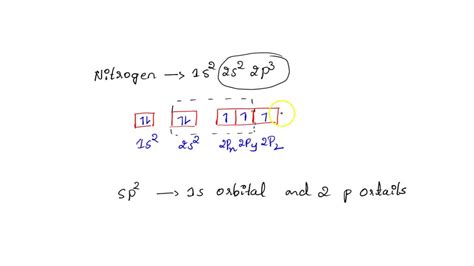 Nitrogen → 1s² 2s² 2p³
1↓ 1↓ 1 1 1
1s² 2s² 2Pn 2Py 2P2
sp² → 1s orbital and 2 p ortails